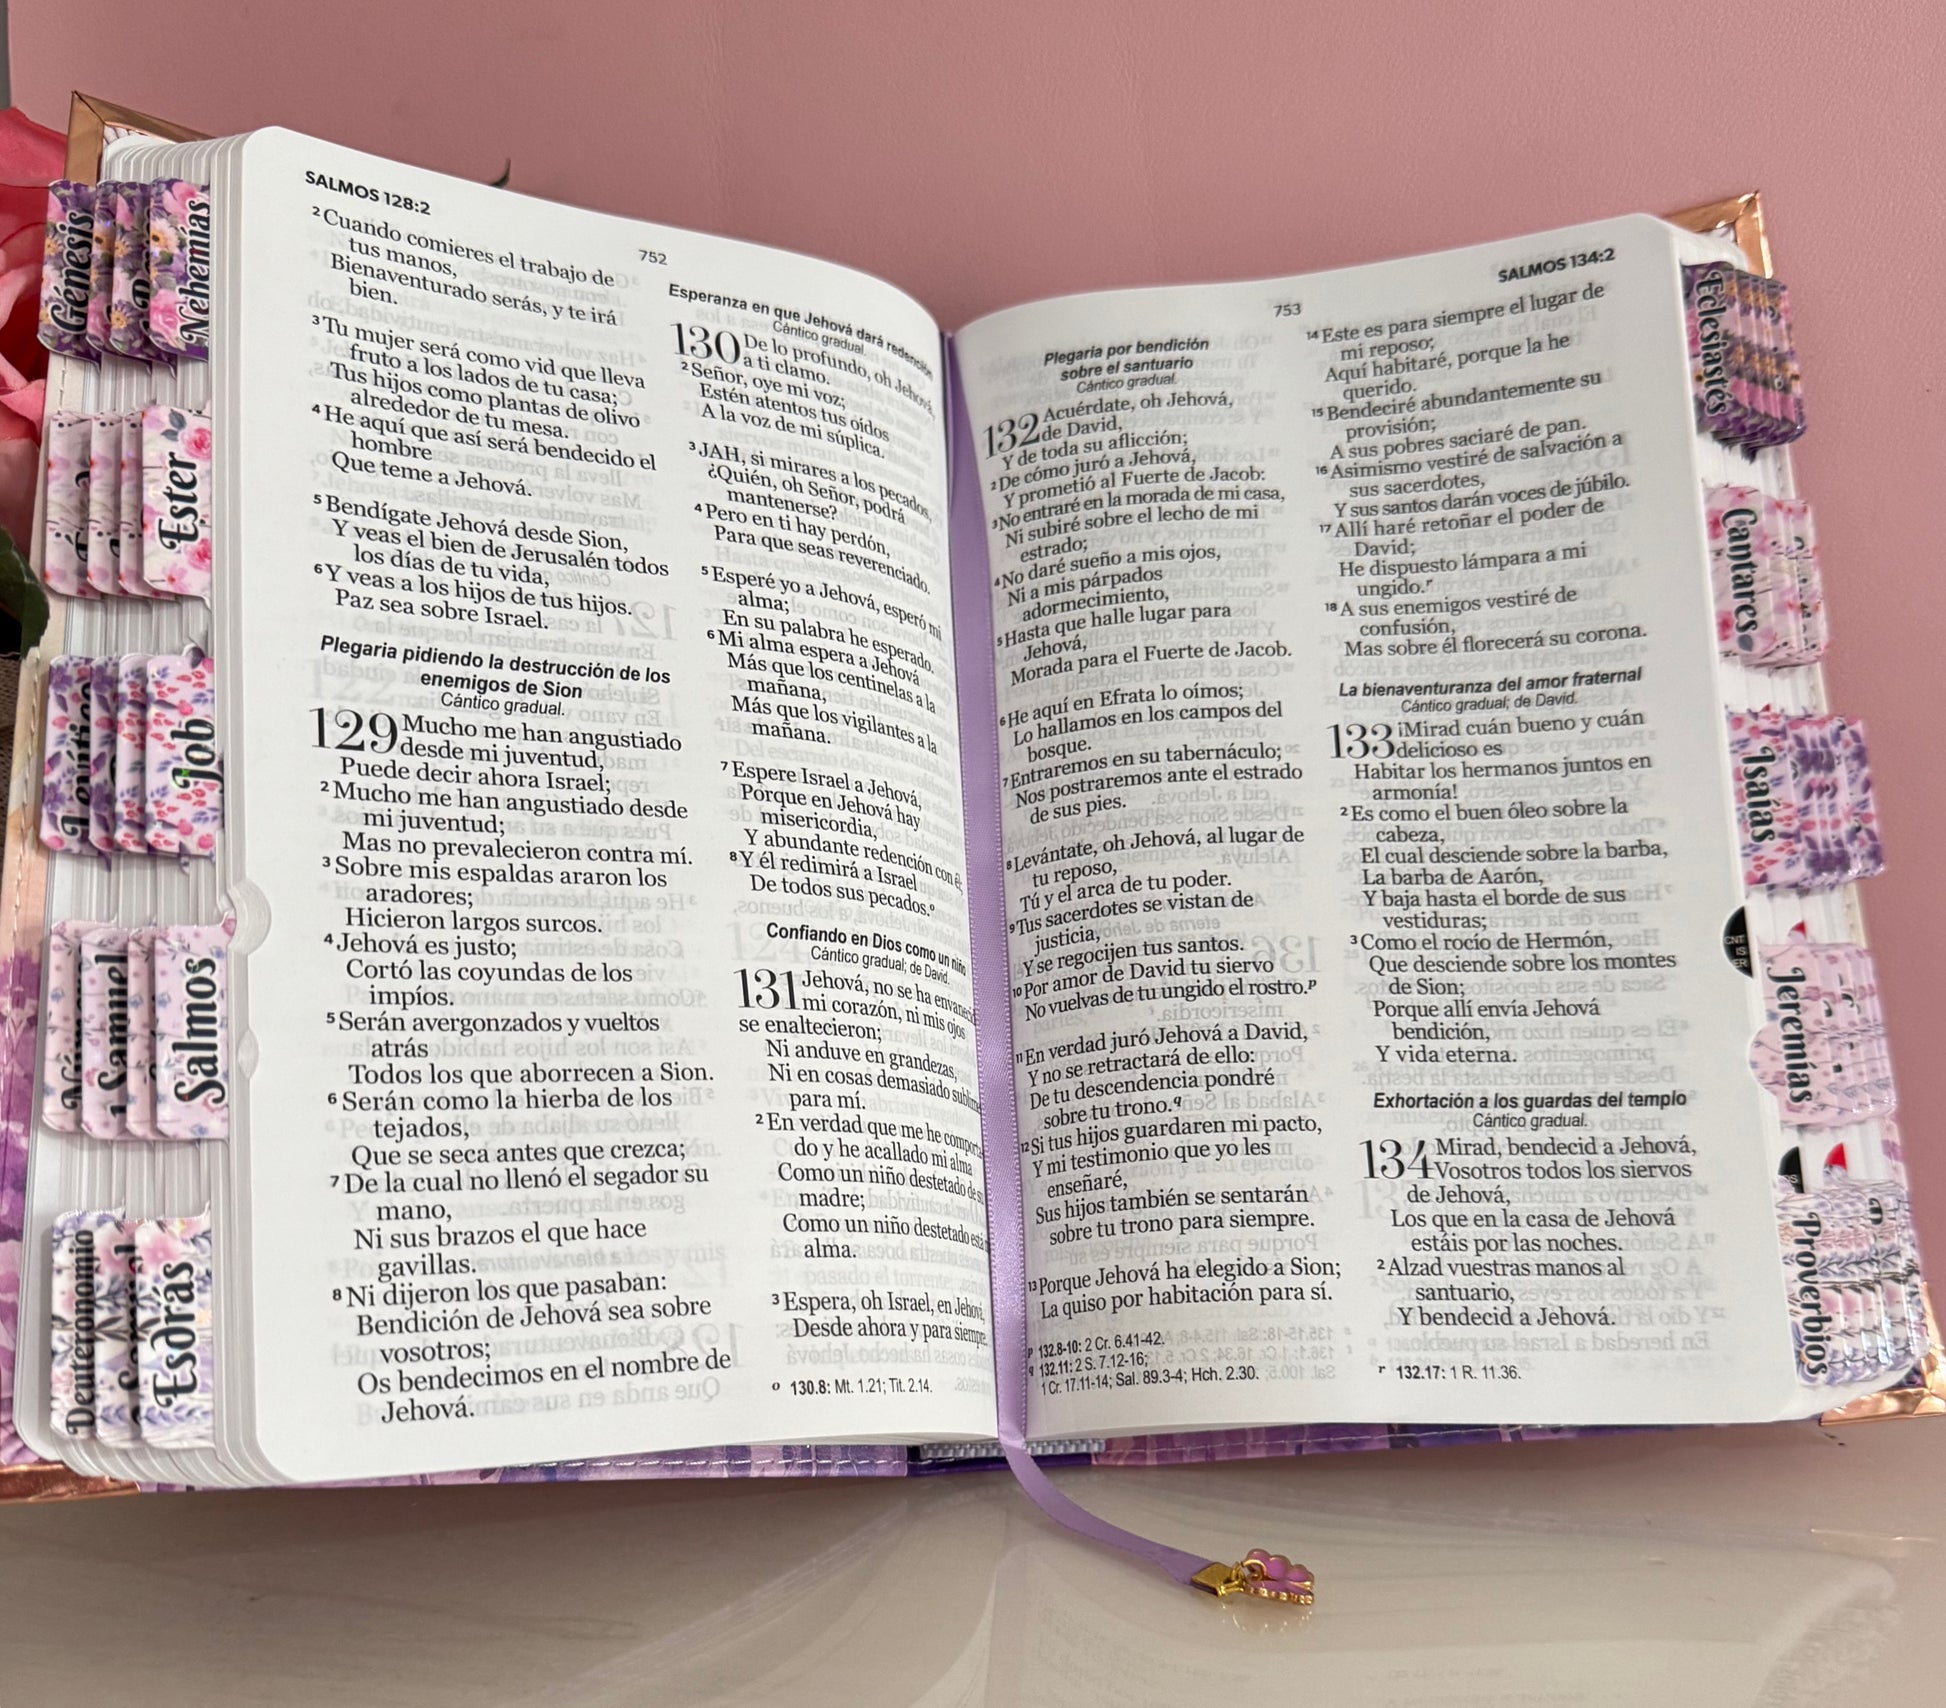 Génesis
Nehemías
Ester
Job
1 Samuel
Salmos
Deuteronomio
Esdrás
SALMOS 128:2
752
² Cuando comieres el trabajo de
tus manos,
Bienaventurado serás, y te irá
bien.
³ Tu mujer será como vid que lleva
fruto a los lados de tu casa;
Tus hijos como plantas de olivo
alrededor de tu mesa.
⁴ He aquí que así será bendecido el
hombre
Que teme a Jehová.
⁵ Bendígate Jehová desde Sion,
Y veas el bien de Jerusalén todos
los días de tu vida,
⁶ Y veas a los hijos de tus hijos.
Paz sea sobre Israel.
Plegaria pidiendo la destrucción de los
enemigos de Sion
Cántico gradual.
129 Mucho me han angustiado
desde mi juventud,
Puede decir ahora Israel;
² Mucho me han angustiado desde
mi juventud;
Mas no prevalecieron contra mí.
³ Sobre mis espaldas araron los
aradores;
Hicieron largos surcos.
⁴ Jehová es justo;
Cortó las coyundas de los
impíos.
⁵ Serán avergonzados y vueltos
atrás
Todos los que aborrecen a Sion.
⁶ Serán como la hierba de los
tejados,
Que se seca antes que crezca;
⁷ De la cual no llenó el segador su
mano,
Ni sus brazos el que hace
gavillas.
⁸ Ni dijeron los que pasaban:
Bendición de Jehová sea sobre
vosotros;
Os bendecimos en el nombre de
Jehová.
Esperanza en que Jehová dará redención
Cántico gradual.
130 De lo profundo, oh Jehová,
a ti clamo.
² Señor, oye mi voz;
Estén atentos tus oídos
A la voz de mi súplica.
³ JAH, si mirares a los pecados,
¿Quién, oh Señor, podrá
mantenerse?
⁴ Pero en ti hay perdón,
Para que seas reverenciado.
⁵ Esperé yo a Jehová, esperó mi
alma;
En su palabra he esperado.
⁶ Mi alma espera a Jehová
Más que los centinelas a la
mañana,
Más que los vigilantes a la
mañana.
⁷ Espere Israel a Jehová,
Porque en Jehová hay
misericordia,
Y abundante redención con él;
⁸ Y él redimirá a Israel
De todos sus pecados.º
Confiando en Dios como un niño
Cántico gradual; de David.
131 Jehová, no se ha envaneci
mi corazón, ni mis ojos
se enaltecieron;
Ni anduve en grandezas,
Ni en cosas demasiado sublime
para mí.
² En verdad que me he comporta
do y he acallado mi alma
Como un niño destetado de su
madre;
Como un niño destetado está
alma.
³ Espera, oh Israel, en Jehová,
Desde ahora y para siempre.
o 130.8: Mt. 1.21; Tit. 2.14.
753
SALMOS 134:2
Plegaria por bendición
sobre el santuario
Cántico gradual.
132 Acuérdate, oh Jehová,
de David,
Y de toda su aflicción;
² De cómo juró a Jehová,
Y prometió al Fuerte de Jacob:
³ No entraré en la morada de mi casa,
Ni subiré sobre el lecho de mi
estrado;
⁴ No daré sueño a mis ojos,
Ni a mis párpados
adormecimiento,
⁵ Hasta que halle lugar para
Jehová,
Morada para el Fuerte de Jacob.
⁶ He aquí en Efrata lo oímos;
Lo hallamos en los campos del
bosque.
⁷ Entraremos en su tabernáculo;
Nos postraremos ante el estrado
de sus pies.
⁸ Levántate, oh Jehová, al lugar de
tu reposo,
Tú y el arca de tu poder.
⁹ Tus sacerdotes se vistan de
justicia,
Y se regocijen tus santos.
¹⁰ Por amor de David tu siervo
No vuelvas de tu ungido el rostro.ᵖ
¹¹ En verdad juró Jehová a David,
Y no se retractará de ello:
De tu descendencia pondré
sobre tu trono.q
¹² Si tus hijos guardaren mi pacto,
Y mi testimonio que yo les
enseñaré,
Sus hijos también se sentarán
sobre tu trono para siempre.
¹³ Porque Jehová ha elegido a Sion;
La quiso por habitación para sí.
p 132.8-10: 2 Cr. 6.41-42.
q 132.11: 2 S. 7.12-16;
1 Cr. 17.11-14; Sal. 89.3-4; Hch. 2.30.
¹⁴ Este es para siempre el lugar de
mi reposo;
Aquí habitaré, porque la he
querido.
¹⁵ Bendeciré abundantemente su
provisión;
A sus pobres saciaré de pan.
¹⁶ Asimismo vestiré de salvación a
sus sacerdotes,
Y sus santos darán voces de júbilo.
¹⁷ Allí haré retoñar el poder de
David;
He dispuesto lámpara a mi
ungido.ʳ
¹⁸ A sus enemigos vestiré de
confusión,
Mas sobre él florecerá su corona.
La bienaventuranza del amor fraternal
Cántico gradual; de David.
133 ¡Mirad cuán bueno y cuán
delicioso es
Habitar los hermanos juntos en
armonía!
² Es como el buen óleo sobre la
cabeza,
El cual desciende sobre la barba,
La barba de Aarón,
Y baja hasta el borde de sus
vestiduras;
³ Como el rocío de Hermón,
Que desciende sobre los montes
de Sion;
Porque allí envía Jehová
bendición,
Y vida eterna.
Exhortación a los guardas del templo
Cántico gradual.
134 Mirad, bendecid a Jehová,
Vosotros todos los siervos
de Jehová,
Los que en la casa de Jehová
estáis por las noches.
² Alzad vuestras manos al
santuario,
Y bendecid a Jehová.
r 132.17: 1 R. 11.36.
Eclesiastés
Cantares
Isaías
Jeremías
Proverbios